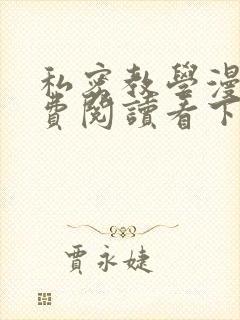 私密教學漫
費閱讀看下
賈永婕